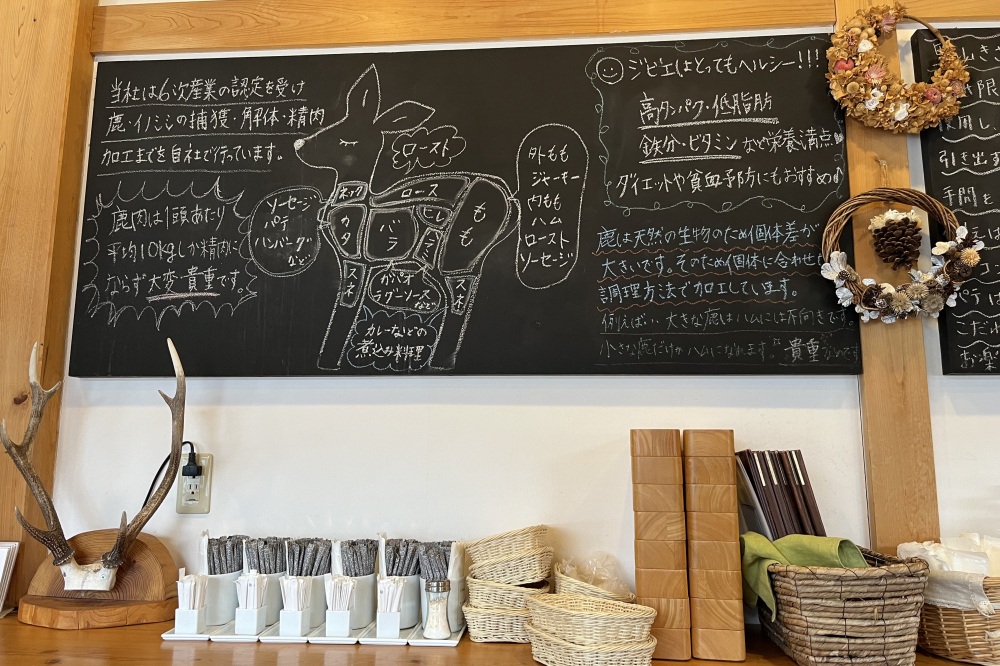 当社は6次産業の認定を受け
鹿・イノシシの捕獲・解体・精肉
加工までを自社で行っています。
鹿肉は1頭あたり
平均10kgしか精肉に
ならず大変貴重です。
ソーセージ
パテ
ハンバーグ
など
ロースト
ネック
ロース
カタ
バラ
ヒレ
もも
スネ
スネ
ガパオ
ラグーソース
など
カレーなどの
煮込み料理
外もも
ジャーキー
内もも
ハム
ロースト
ソーセージ
ジビエはとってもヘルシー!!!
高タンパク・低脂肪
鉄分・ビタミンなど栄養満点
ダイエットや貧血予防にもおすすめ♪
鹿は天然の生物のため個体差が
大きいです。そのため個体に合わせた
調理方法で加工しています。
例えば… 大きな鹿はハムには不向きです。
小さな鹿だけがハムになれます。貴重
限
使用し、
引き出す
手間と
パテは
こだわ
お楽